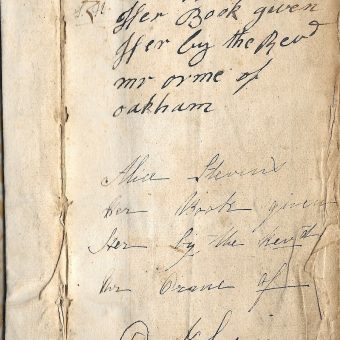 Her Book given
Her by the Revd
mr orme of
oakham
Alice Stevens
her Book given
Her by the Revd
Mr Orme of